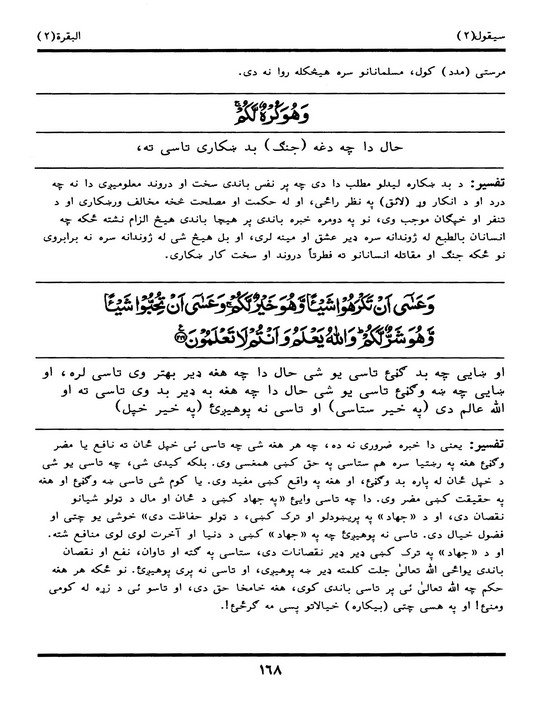 سيقول(۲)
البقرة(۲)
مرستې (مدد) کول، مسلمانانو سره هيڅکله روا نه دی.
وَهُوَ كُرْهٌ لَّكُمْ ۚ
حال دا چه دغه (جنګ) بد ښکاری تاسې ته،
تفسير: د بد ښکاره ليدلو مطلب دا دی چه پر نفس باندی سخت او دروند معلوميږی دا نه چه
درد او د انکار وړ (لائق) په نظر راځی، او له حکمت او مصلحت څخه مخالف ورښکاری او د
تنفر او خپګان موجب وی، نو په دومره خبره باندی پر هيچا باندی هيڅ الزام نشته ځکه چه
انسانان بالطبع له ژوندانه سره ډير عشق او مينه لری، او بل هيڅ شی له ژوندانه سره نه برابروی
نو ځکه جنګ او مقاتله انسانانو ته فطرتاً دروند او سخت کار ښکاری.
وَعَسٰٓى اَنْ تَكْرَهُوْا شَيْـًٔا وَّهُوَ خَيْرٌ لَّكُمْ ۚ وَعَسٰٓى اَنْ تُحِبُّوْا شَيْـًٔا
وَّهُوَ شَرٌّ لَّكُمْ ؕ وَاللّٰهُ يَعْلَمُ وَاَنْتُمْ لَا تَعْلَمُوْنَ ﴿۲۱۶﴾
او ښايی چه بد ګڼئ تاسې يو شی حال دا چه هغه ډير بهتر وی تاسې لره، او
ښايی چه ښه وګڼئ تاسې يو شی حال دا چه هغه به ډير بد وی تاسې ته او
الله عالم دی (په خير ستاسې) او تاسې نه پوهيږئ (په خير خپل)
تفسير: يعنی دا خبره ضروری نه ده، چه هر هغه شی چه تاسې ئی خپل ځان ته نافع يا مضر
وګڼئ هغه په رښتيا سره هم ستاسې په حق کښی همغسې وی. بلکه کيدی شی، چه تاسې يو شی
د خپل ځان له پاره بد وګڼئ، او هغه په واقع کښی مفيد وی. يا کوم شی تاسې ښه وګڼئ او هغه
په حقيقت کښی مضر وی. دا چه تاسې وايئ «په جهاد کښی د ځان او مال د تولو شيانو
نقصان دی، او د «جهاد» په پريښودلو او ترک کښی، د تولو حفاظت دی» خوشی يو چتی او
فضول خيال دی. تاسې نه پوهيږئ چه په «جهاد» کښی د دنيا او آخرت لوی لوی منافع شته.
او د «جهاد» په ترک کښی ډير ډير نقصانات دی، ستاسې په ګټه او تاوان، نفع او نقصان
باندی يواځی الله تعالیٰ جلت کلمته ډير ښه پوهيږی، او تاسې نه پری پوهيږئ. نو ځکه هر هغه
حکم چه الله تعالیٰ ئی پر تاسې باندی کوی، هغه خامخا حق دی، او تاسو ئی د زړه له کومی
ومنئ! او په هسی چتی (بيکاره) خيالاتو پسی مه ګرځئ!.
۱۶۸